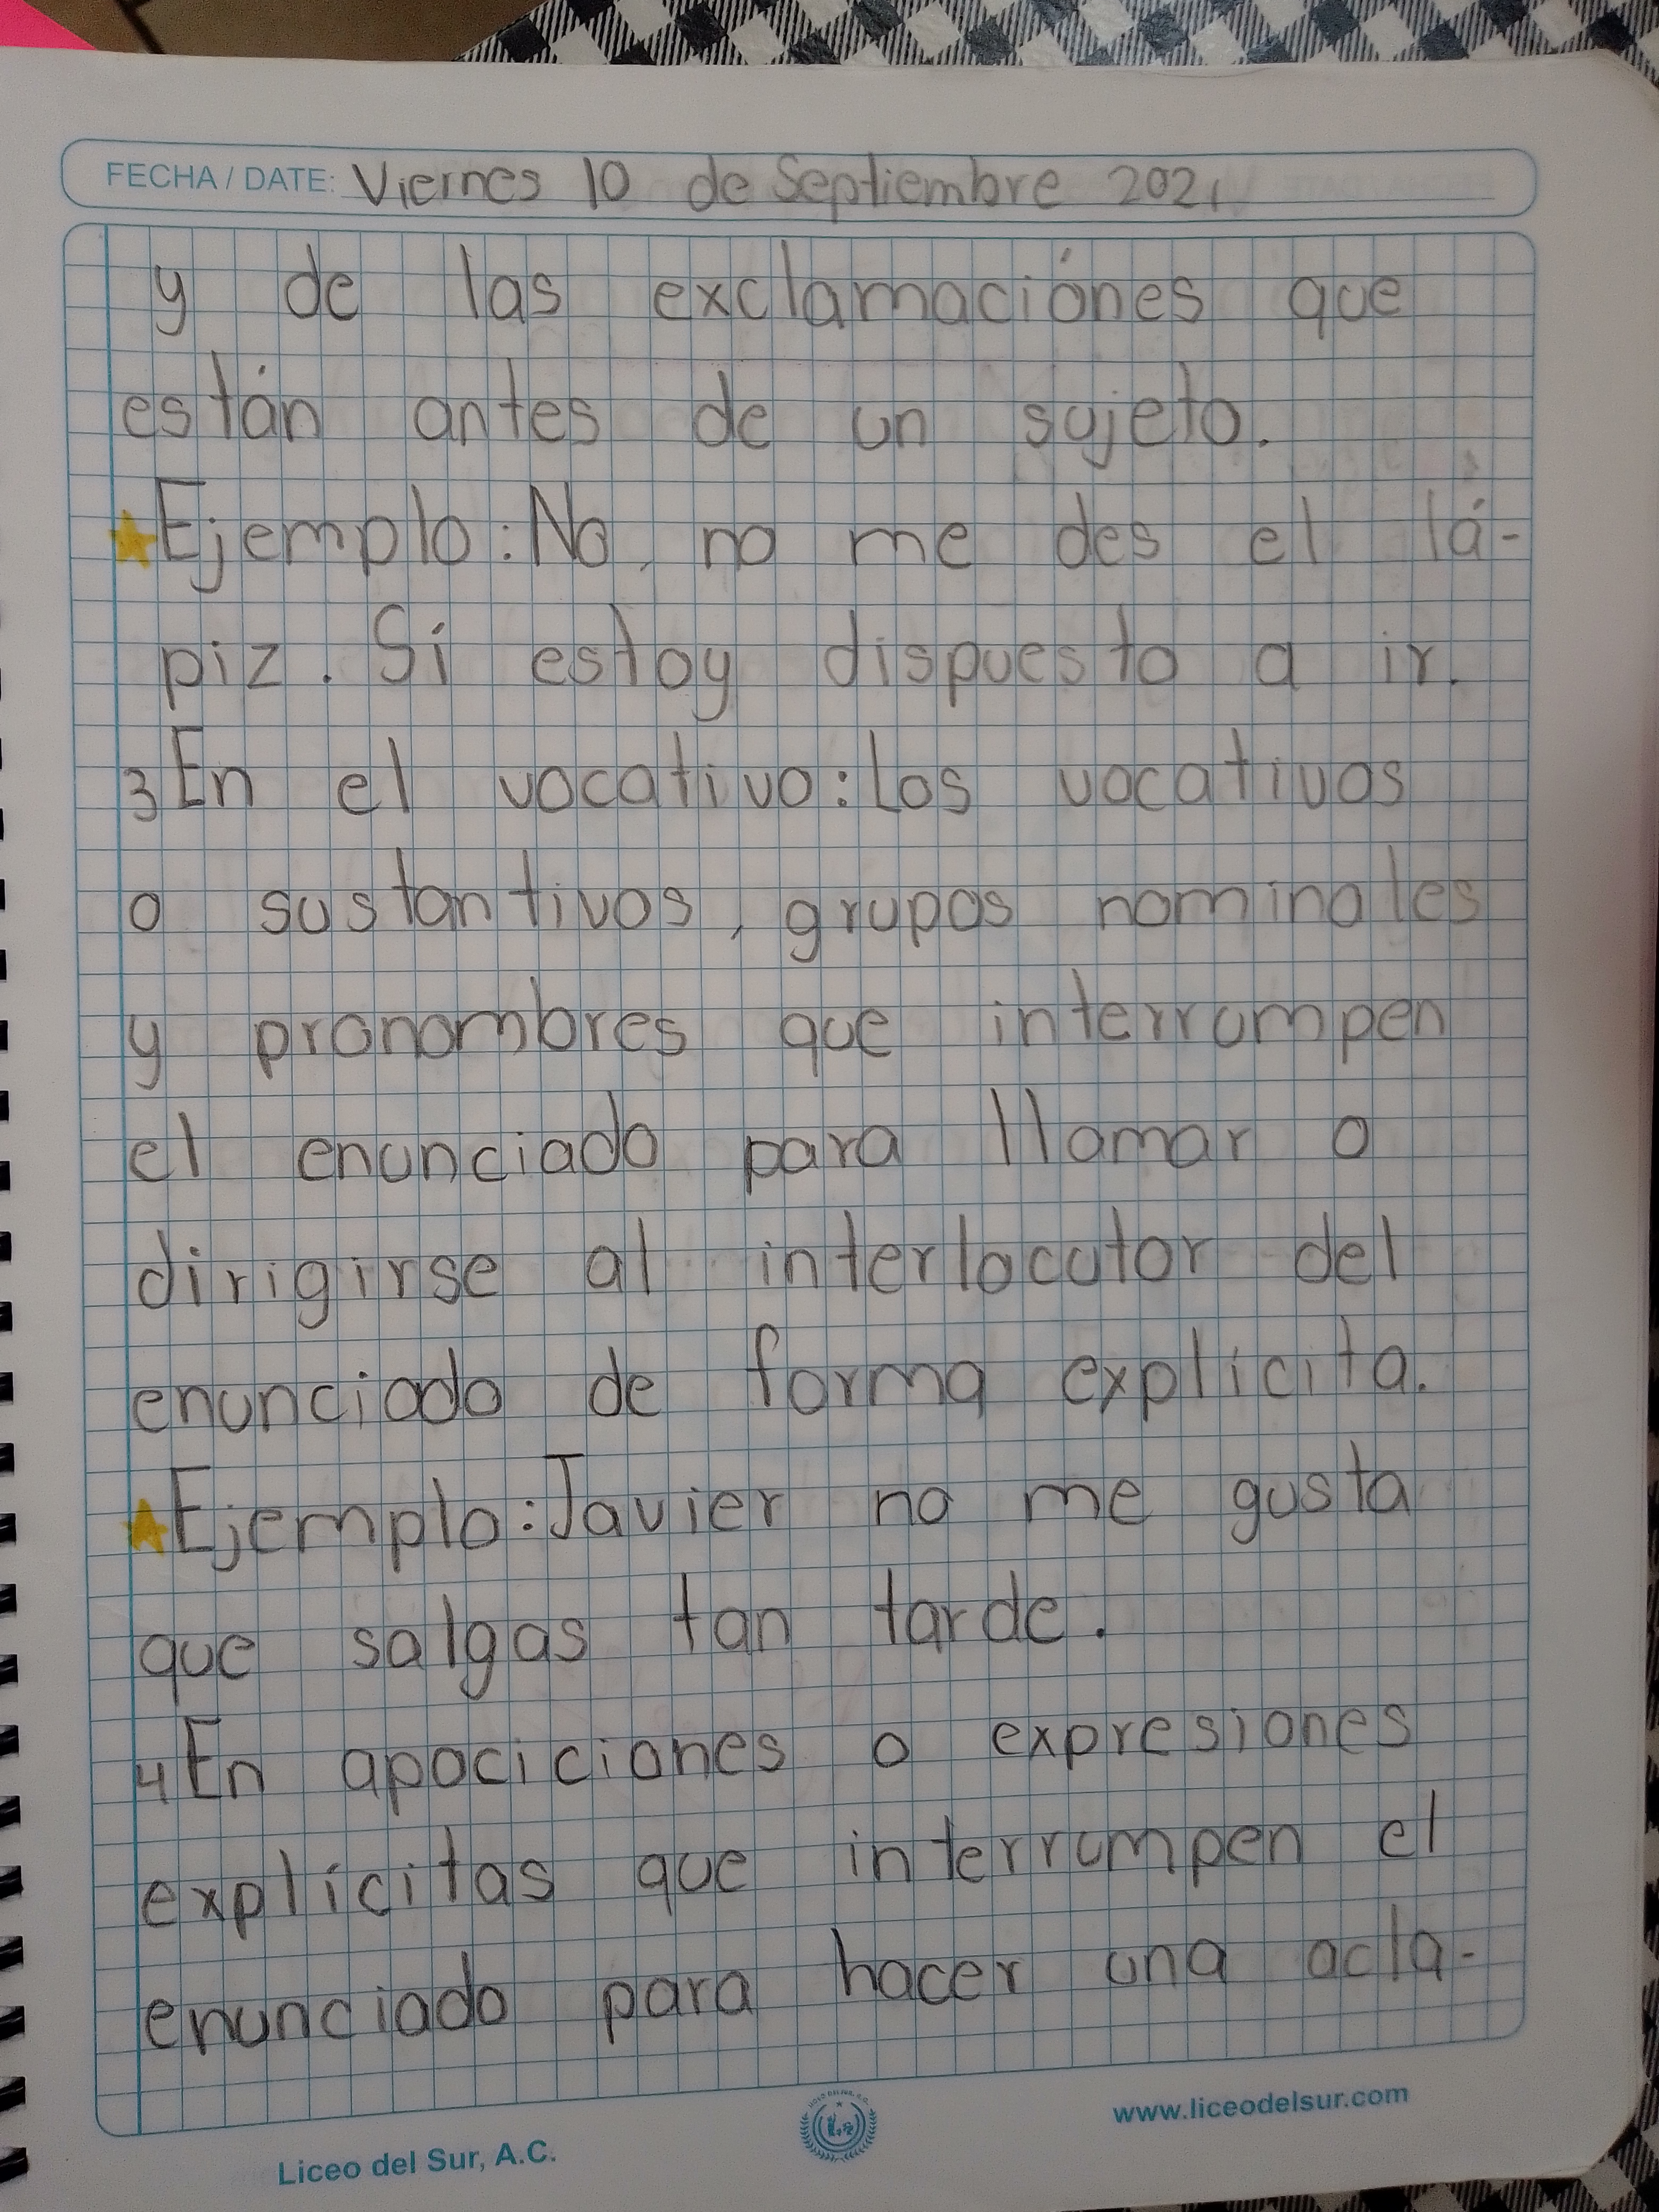 FECHA / DATE: Viernes 10 de Septiembre 2021
y de las exclamaciónes que
están antes de un sujeto.
Ejemplo: No, no me des el lá-
piz. Sí estoy dispuesto a ir.
3 En el vocativo: Los vocativos
o sustantivos, grupos nominales
y pronombres que interrumpen
el enunciado para llamar o
dirigirse al interlocutor del
enunciado de forma explícita.
Ejemplo: Javier no me gusta
que salgas tan tarde.
4 En apociciones o expresiones
explícitas que interrumpen el
enunciado para hacer una acla-
Liceo del Sur, A.C.
www.liceodelsur.com